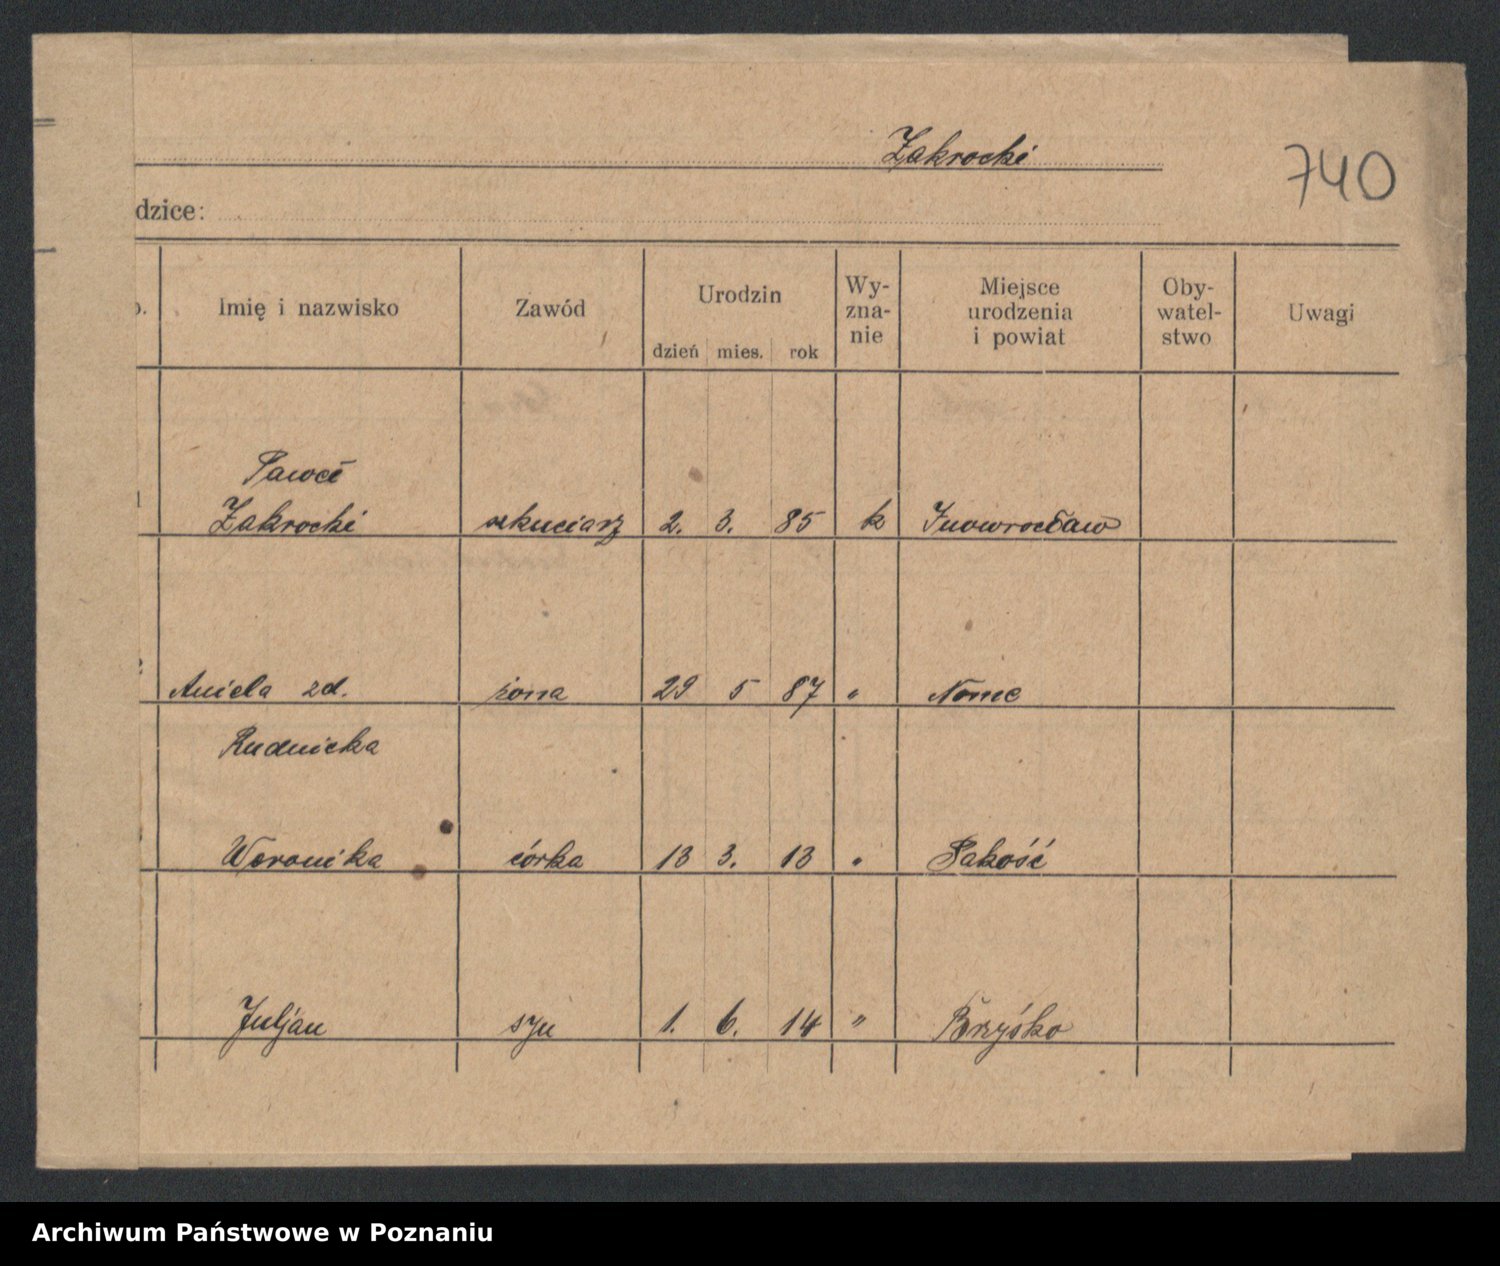 Zakrocki
740
dzice:
Imię i nazwisko
Zawód
Urodzin
dzień mies. rok
Wy-
zna-
nie
Miejsce
urodzenia
i powiat
Oby-
watel-
stwo
Uwagi
Paweł
Zakrocki 2. 3. 85 k Inowrocław
Aniela zd. żona 29 5 87 "
Rudnicka
Weronika córka 13 3. 13 " Pakość
Juljan syn 1. 6. 14 "
Archiwum Państwowe w Poznaniu